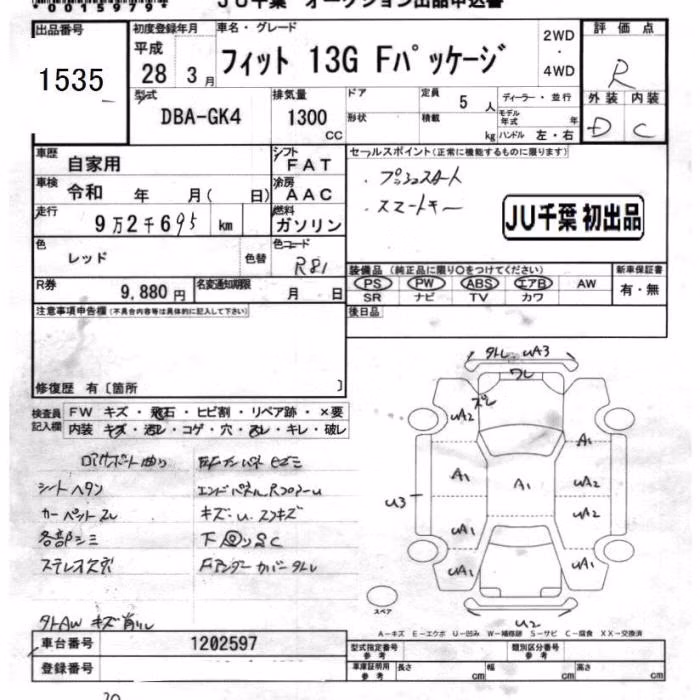 00159799
JU千葉 オークション出品申込書
出品番号
1535
初度登録年月
平成
28 3月
車名・グレード
フィット 13G Fパッケージ
2WD
・
4WD
評価点
R
外装 内装
D C
型式
DBA-GK4
排気量
1300
CC
ドア
形状
定員
5 人
積載
kg
ディーラー・並行
モデル年式 年
ハンドル 左・右
車歴
自家用
シフト
FAT
車検
令和 年 月( 日)
冷房
AAC
走行
9万2千695 km
燃料
ガソリン
色
レッド
色替
色コード
R81
R券
9,880 円
名変通知期限
月 日
セールスポイント(正常に機能するものに限ります)
・プッシュスタート
・スマートキー
JU千葉 初出品
装備品(純正品に限り〇をつけてください)
PS PW ABS エアB AW
SR ナビ TV カワ
新車保証書
有・無
後日品
注意事項申告欄(不具合内容等は具体的に記入して下さい)
修復歴 有〔箇所 〕
検査員
記入欄
FW キズ・飛石・ヒビ割・リペア跡・×要
内装 キズ・汚レ・コゲ・穴・スレ・キレ・破レ
シートヘタン
カーペットスレ
各部シミ
キズ・u・スリキズ
Fアンダーカバータレ
外AW キズ削レ
タレ、uA3
ワレ
ズレ
uA2
A1
A1
A1
uA2
u3
uA1
uA2
uA1
uA1
u2
スペア
A-キズ E-エクボ U-凹み W-補修跡 S-サビ C-腐食 XX-交換済
車台番号
1202597
登録番号
型式指定番号
参考
類別区分番号
参考
車庫証明用
参考
長さ cm 幅 cm 高さ cm